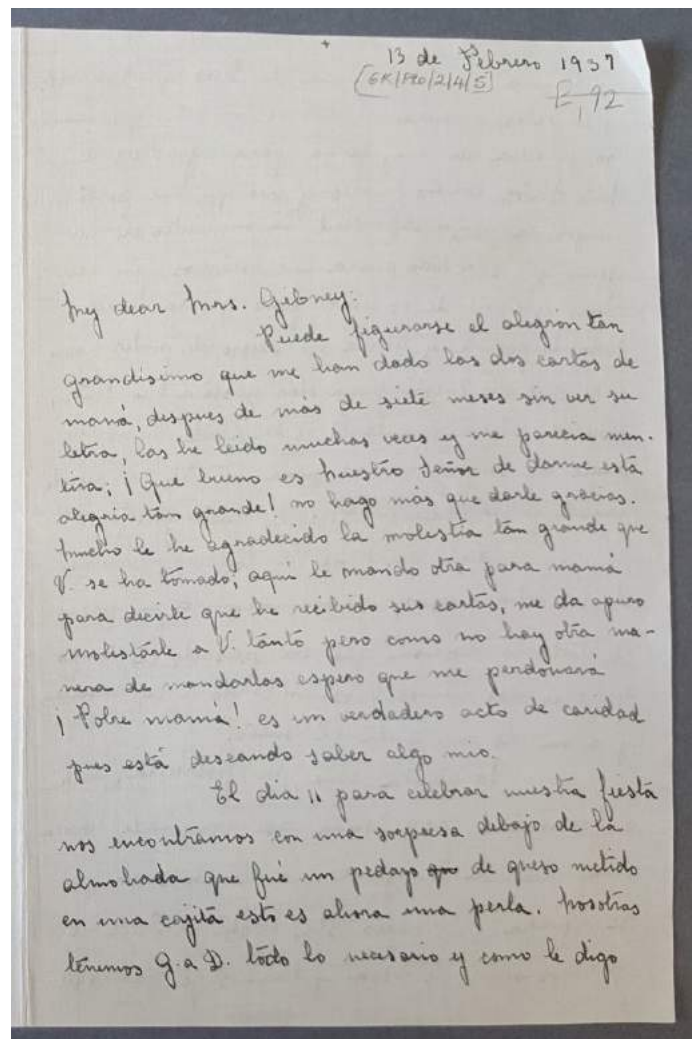 13 de Febrero 1937
[GK/PRO/2/4/5]
E, 92
My dear Mrs. Gibney:
Puede figurarse el alegrón tan
grandísimo que me han dado las dos cartas de
mamá, despues de más de siete meses sin ver su
letra, las he leido muchas veces y me parecia men-
tira; ¡Que bueno es Nuestro Señor de darme esta
alegria tan grande! no hago más que darle gracias.
Mucho le he agradecido la molestia tan grande que
V. se ha tomado; aquí le mando otra para mamá
para decirle que he recibido sus cartas, me da apuro
molestarle a V. tanto pero como no hay otra ma-
nera de mandarlas espero que me perdonará
¡Pobre mamá! es un verdadero acto de caridad
pues está deseando saber algo mio.
El dia 11 para celebrar nuestra fiesta
nos encontramos con una sorpresa debajo de la
almohada que fué un pedazo que de queso metido
en una cajita esto es ahora una perla. Nosotras
tenemos G. a D. todo lo necesario y como le digo